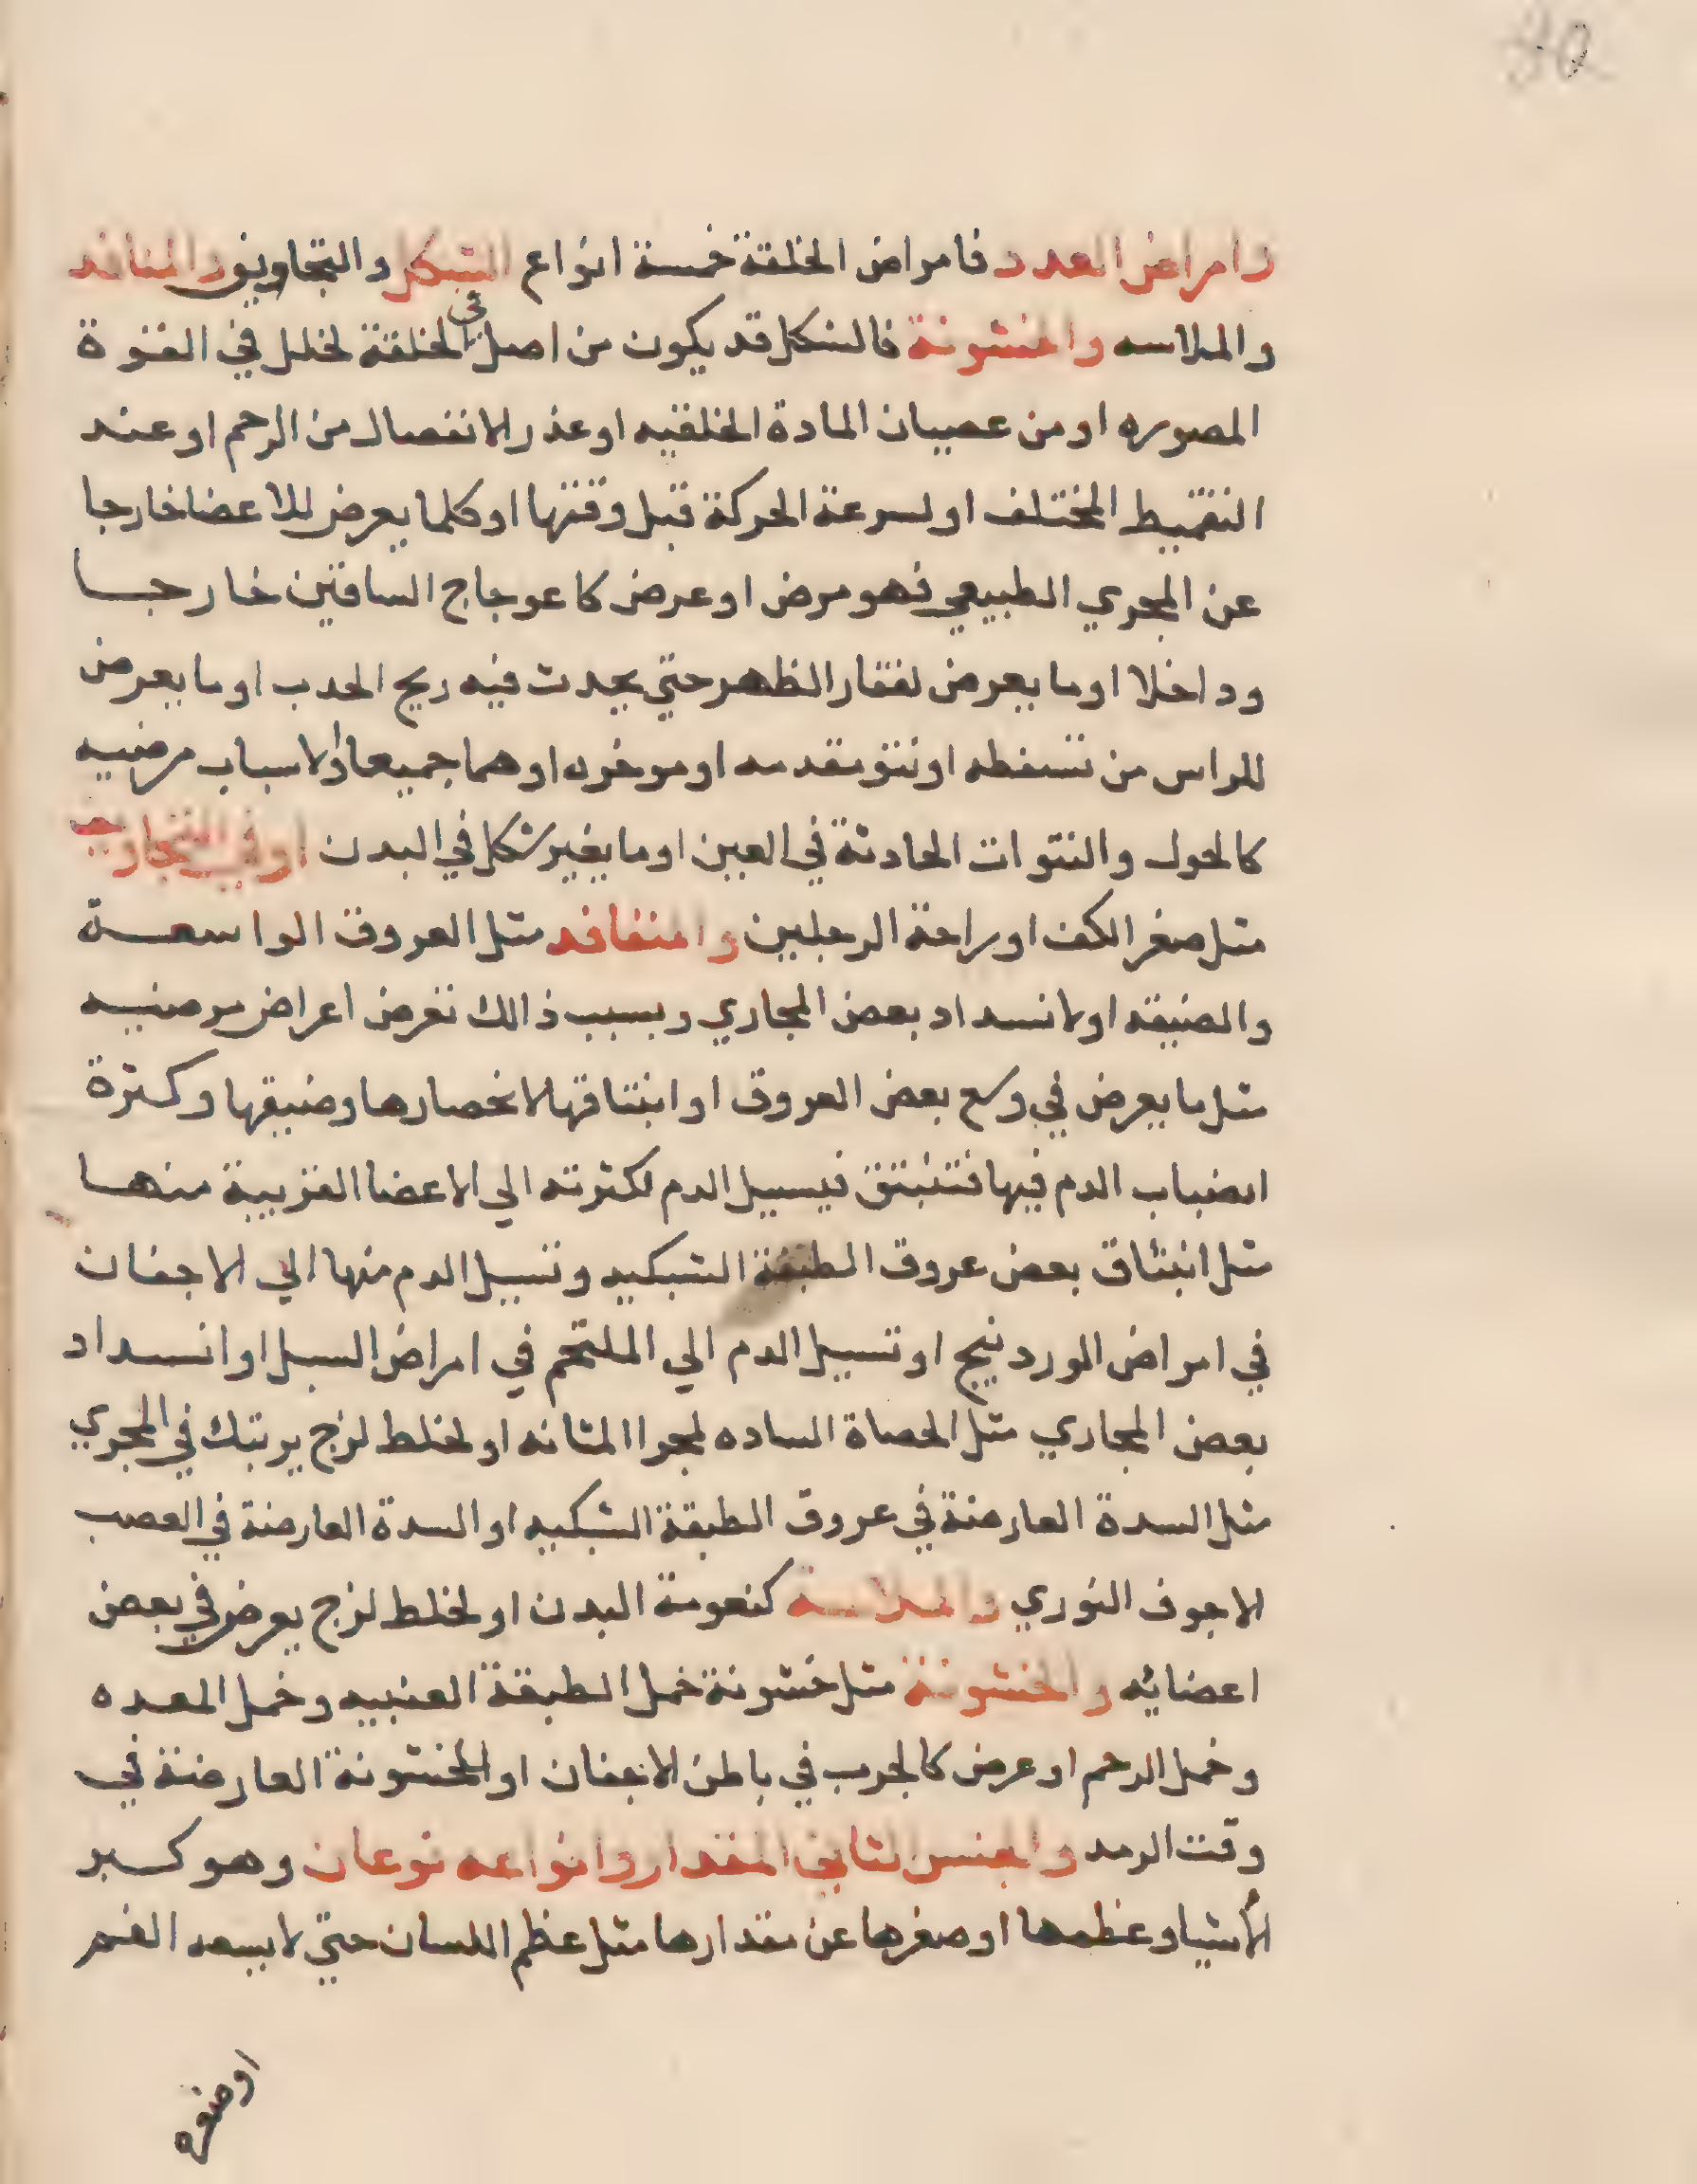 وامراض العدد فامراض الخلقة خمسة انواع الشكل والتجاويف والمنافد
والملاسه والخشونة فالشكل قد يكون من اصل الخلقة لخلل في القوة
المصوره او من عصيان المادة الخلقيه او عند الانفصال من الرحم او عند
التقميط المختلف او لسرعة الحركة قبل وقتها او كلما يعرض للاعضا خارجا
عن المجري الطبيعي فهو مرض او عرض كاعوجاج الساقين خارجا
وداخلا او ما يعرض لفقار الظهر حتي يحدث فيه ريح الحدب او ما يعرض
للراس من تسفطه او نتو مقدمه او موخره او هما جميعا او لاسباب مرضيه
كالحول والنتوات الحادثة في العين او ما يغير شكل في البدن او في التجاويف
مثل صغر الكف او راحة الرجلين والمنفافد مثل العروق الواسعة
والضيقه او لانسداد بعض المجاري وبسبب ذالك تعرض اعراض مرضيه
مثل ما يعرض في وسع بعض العروق او انبثاقها لانحصارها وضيقها وكثرة
انصباب الدم فيها فتنبثق فيسيل الدم لكثرته الي الاعضا القريبة منها
مثل انبثاق بعض عروق الطبقة الشبكيه وتسيل الدم منها الي الاجفان
في امراض الوردنيج او تسيل الدم الي الملتحم في امراض السبل او انسداد
بعض المجاري مثل الحصاة الساده لمجرا المثانه او لخلط لزج يرتبك في المجري
مثل السدة العارضة في عروق الطبقة الشبكيه او السدة العارضة في العصب
الاجوف النوري والملاسة كنعومة البدن او لخلط لزج يعرض في بعض
اعضايه والخشونة مثل خشونة خمل الطبقة العنبيه وخمل المعده
وخمل الرحم او عرض كالجرب في باطن الاجفان او الخشونة العارضة في
وقت الرمد والجنس الثاني المقدار وانواعه نوعان وهو كبر
الأشيا وعظمها او صغرها عن مقدارها مثل عظم اللسان حتي لا يسعه الفم
او صغره